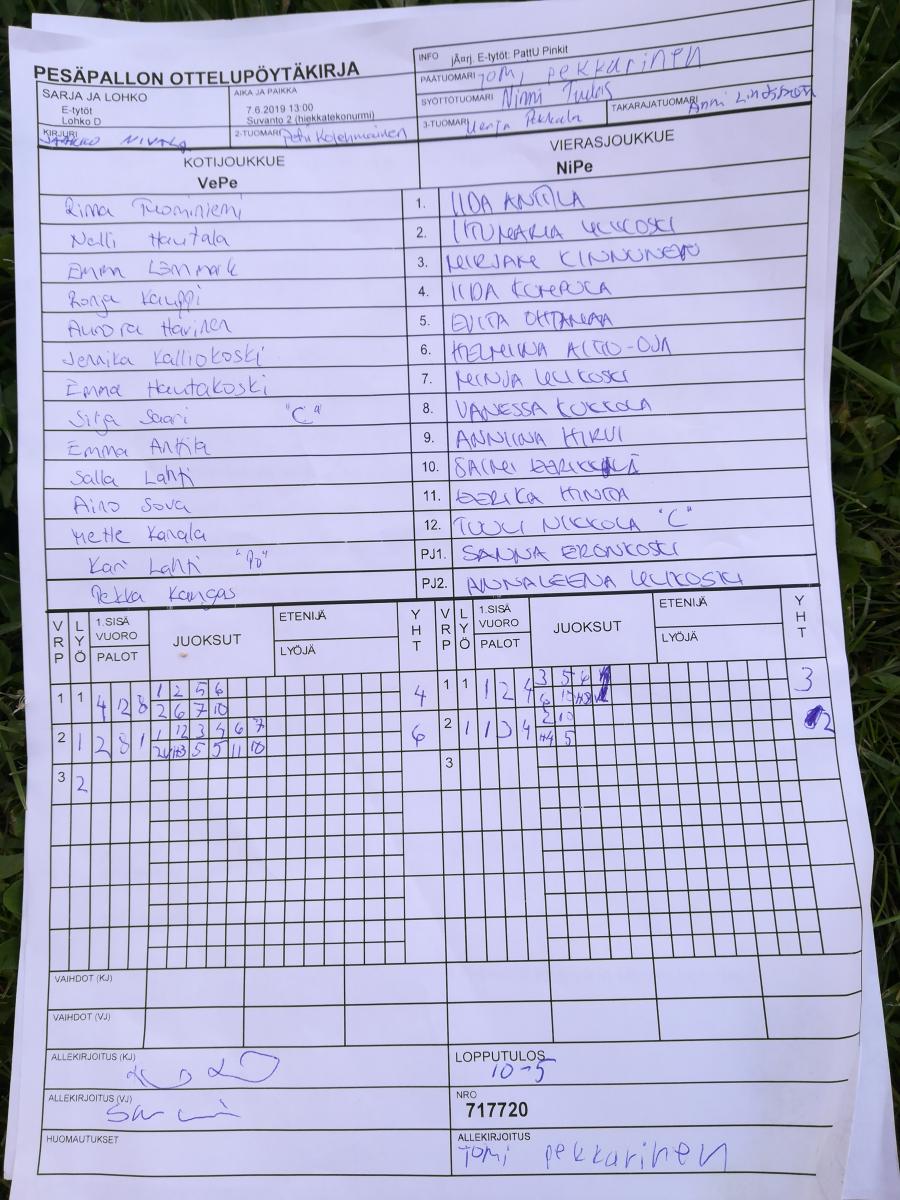 PESÄPALLON OTTELUPÖYTÄKIRJA
INFO jÃ¤rj. E-tytöt: PattU Pinkit
PÄÄTUOMARI Tomi Pekkarinen
SARJA JA LOHKO
E-tytöt
Lohko D
AIKA JA PAIKKA
7.6.2019 13:00
Suvanto 2 (hiekkatekonurmi)
SYÖTTÖTUOMARI Ninni
3-TUOMARI Pekkala
TAKARAJATUOMARI Anni Lindström
KIRJURI JAAKKO NIVALA
2-TUOMARI Petri Kolehmainen
KOTIJOUKKUE
VePe
VIERASJOUKKUE
NiPe
Riina Tuominiemi 1. IIDA ANTTILA
Nelli Hautala 2. ULIKOSKI
Emma 3. MIRJAM KINNUNEN
Ronja Kauppi 4. IIDA
Aurora Harinen 5. EVITA OHTAMAA
Jennika Kalliokoski 6. HELMIINA ALITO-OJA
Emma Hautakoski 7. MINJA ULIKOSKI
Sirja Saari "C" 8. VANESSA KUKKOLA
Emma Anttila 9. ANNIINA HIRVI
Salla Lahti 10. SAIMI
Aino Sova 11. EERIKA HINTSA
Mette Kangla 12. TUULI NIKKOLA "C"
Kari Lahti "PJ" PJ1. SANNA ERONKOSKI
Pekka Kangas PJ2. ANNALEENA ULIKOSKI
VRP LYÖ 1.SISÄ VUORO PALOT JUOKSUT ETENIJÄ LYÖJÄ YHT VRP LYÖ 1.SISÄ VUORO PALOT JUOKSUT ETENIJÄ LYÖJÄ YHT
1 1 4 12 8 1 2 5 6 4 1 1 1 2 4 3 5 6 3
2 6 7 10 6 10
2 1 2 8 1 1 12 3 5 6 7 6 2 1 1 3 4 2 10 2
5 5 11 10 H4 5
3 2 3
VAIHDOT (KJ)
VAIHDOT (VJ)
ALLEKIRJOITUS (KJ)
LOPPUTULOS
10-5
ALLEKIRJOITUS (VJ)
NRO
717720
HUOMAUTUKSET
ALLEKIRJOITUS
Tomi Pekkarinen